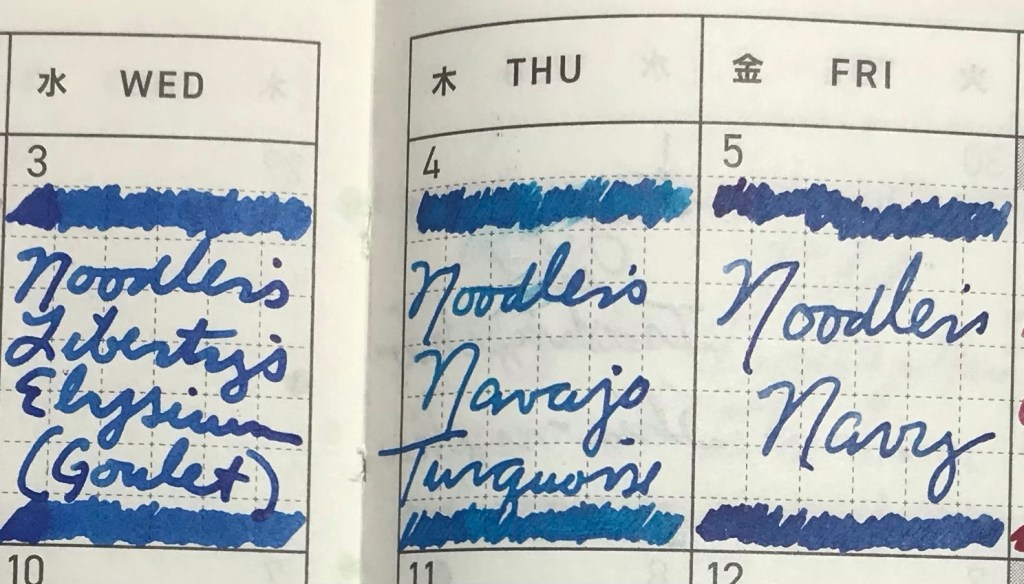 水 WED
3
Noodler's
Liberty's
Elysium
(Goulet)
10
木 THU
4
Noodler's
Navajo
Turquoise
11
金 FRI
5
Noodler's
Navy
12